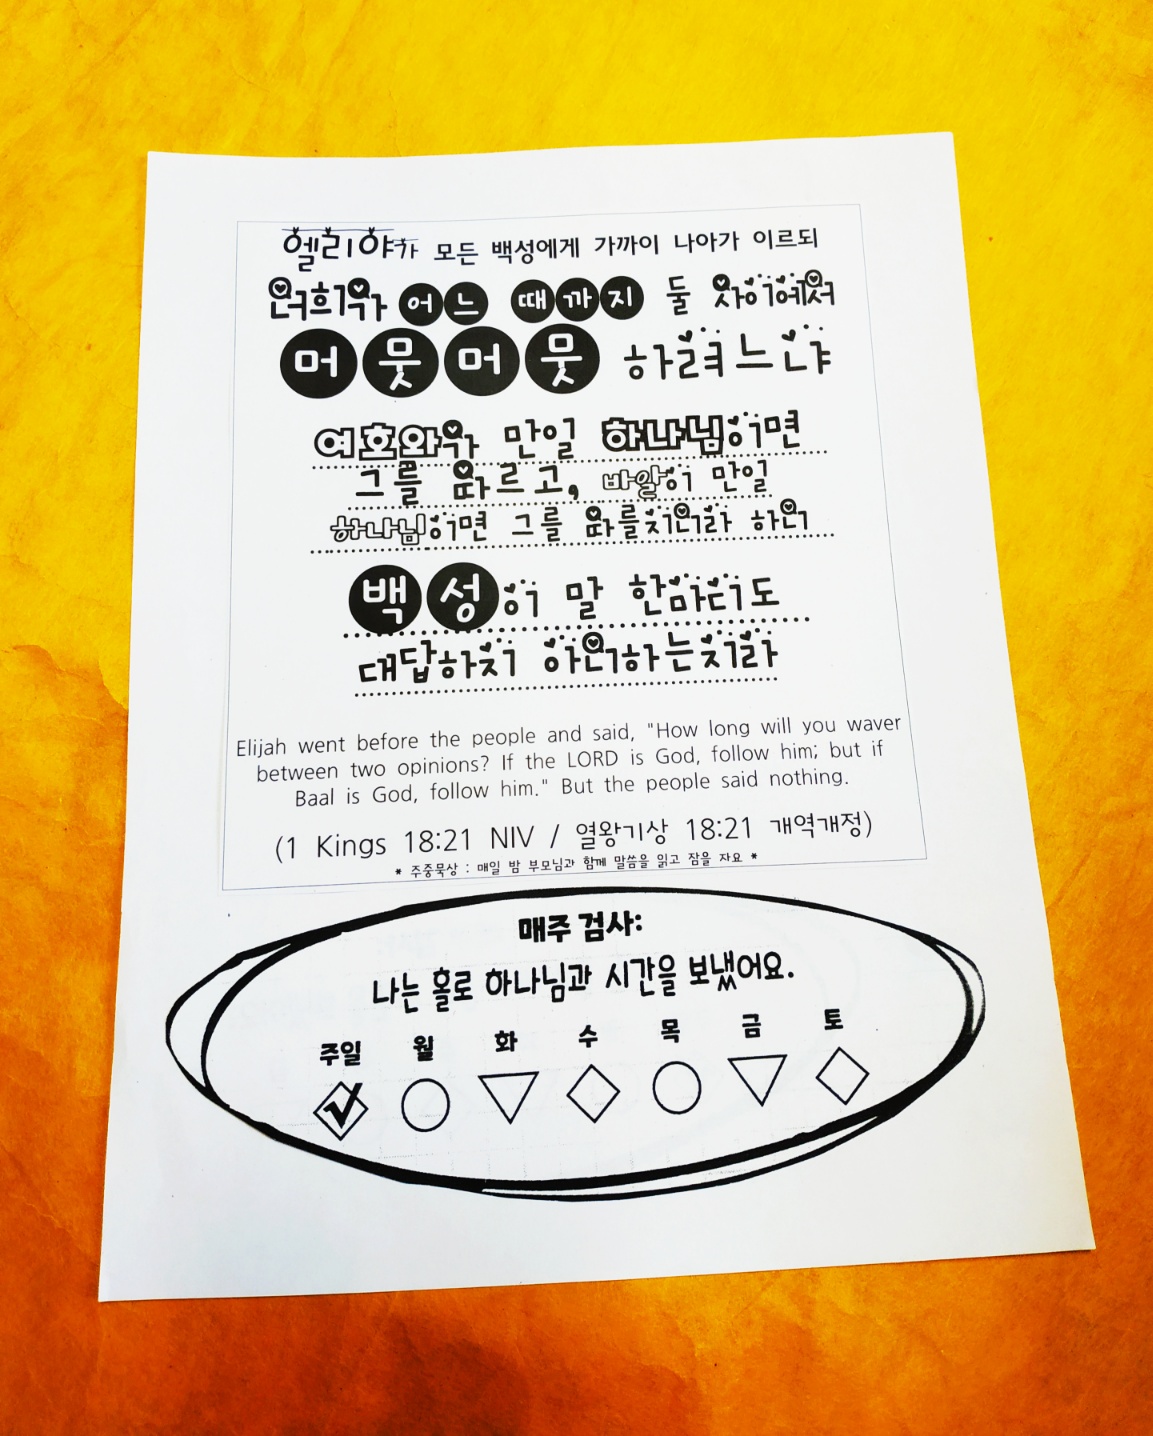 엘리야가 모든 백성에게 가까이 나아가 이르되
너희가 어느 때까지 둘 사이에서
머뭇머뭇 하려느냐
여호와가 만일 하나님이면
그를 따르고, 바알이 만일
하나님이면 그를 따를지니라 하니
백성이 말 한마디도
대답하지 아니하는지라
Elijah went before the people and said, "How long will you waver
between two opinions? If the LORD is God, follow him; but if
Baal is God, follow him." But the people said nothing.
(1 Kings 18:21 NIV / 열왕기상 18:21 개역개정)
* 주중묵상 : 매일 밤 부모님과 함께 말씀을 읽고 잠을 자요 *
매주 검사:
나는 홀로 하나님과 시간을 보냈어요.
주일 월 화 수 목 금 토